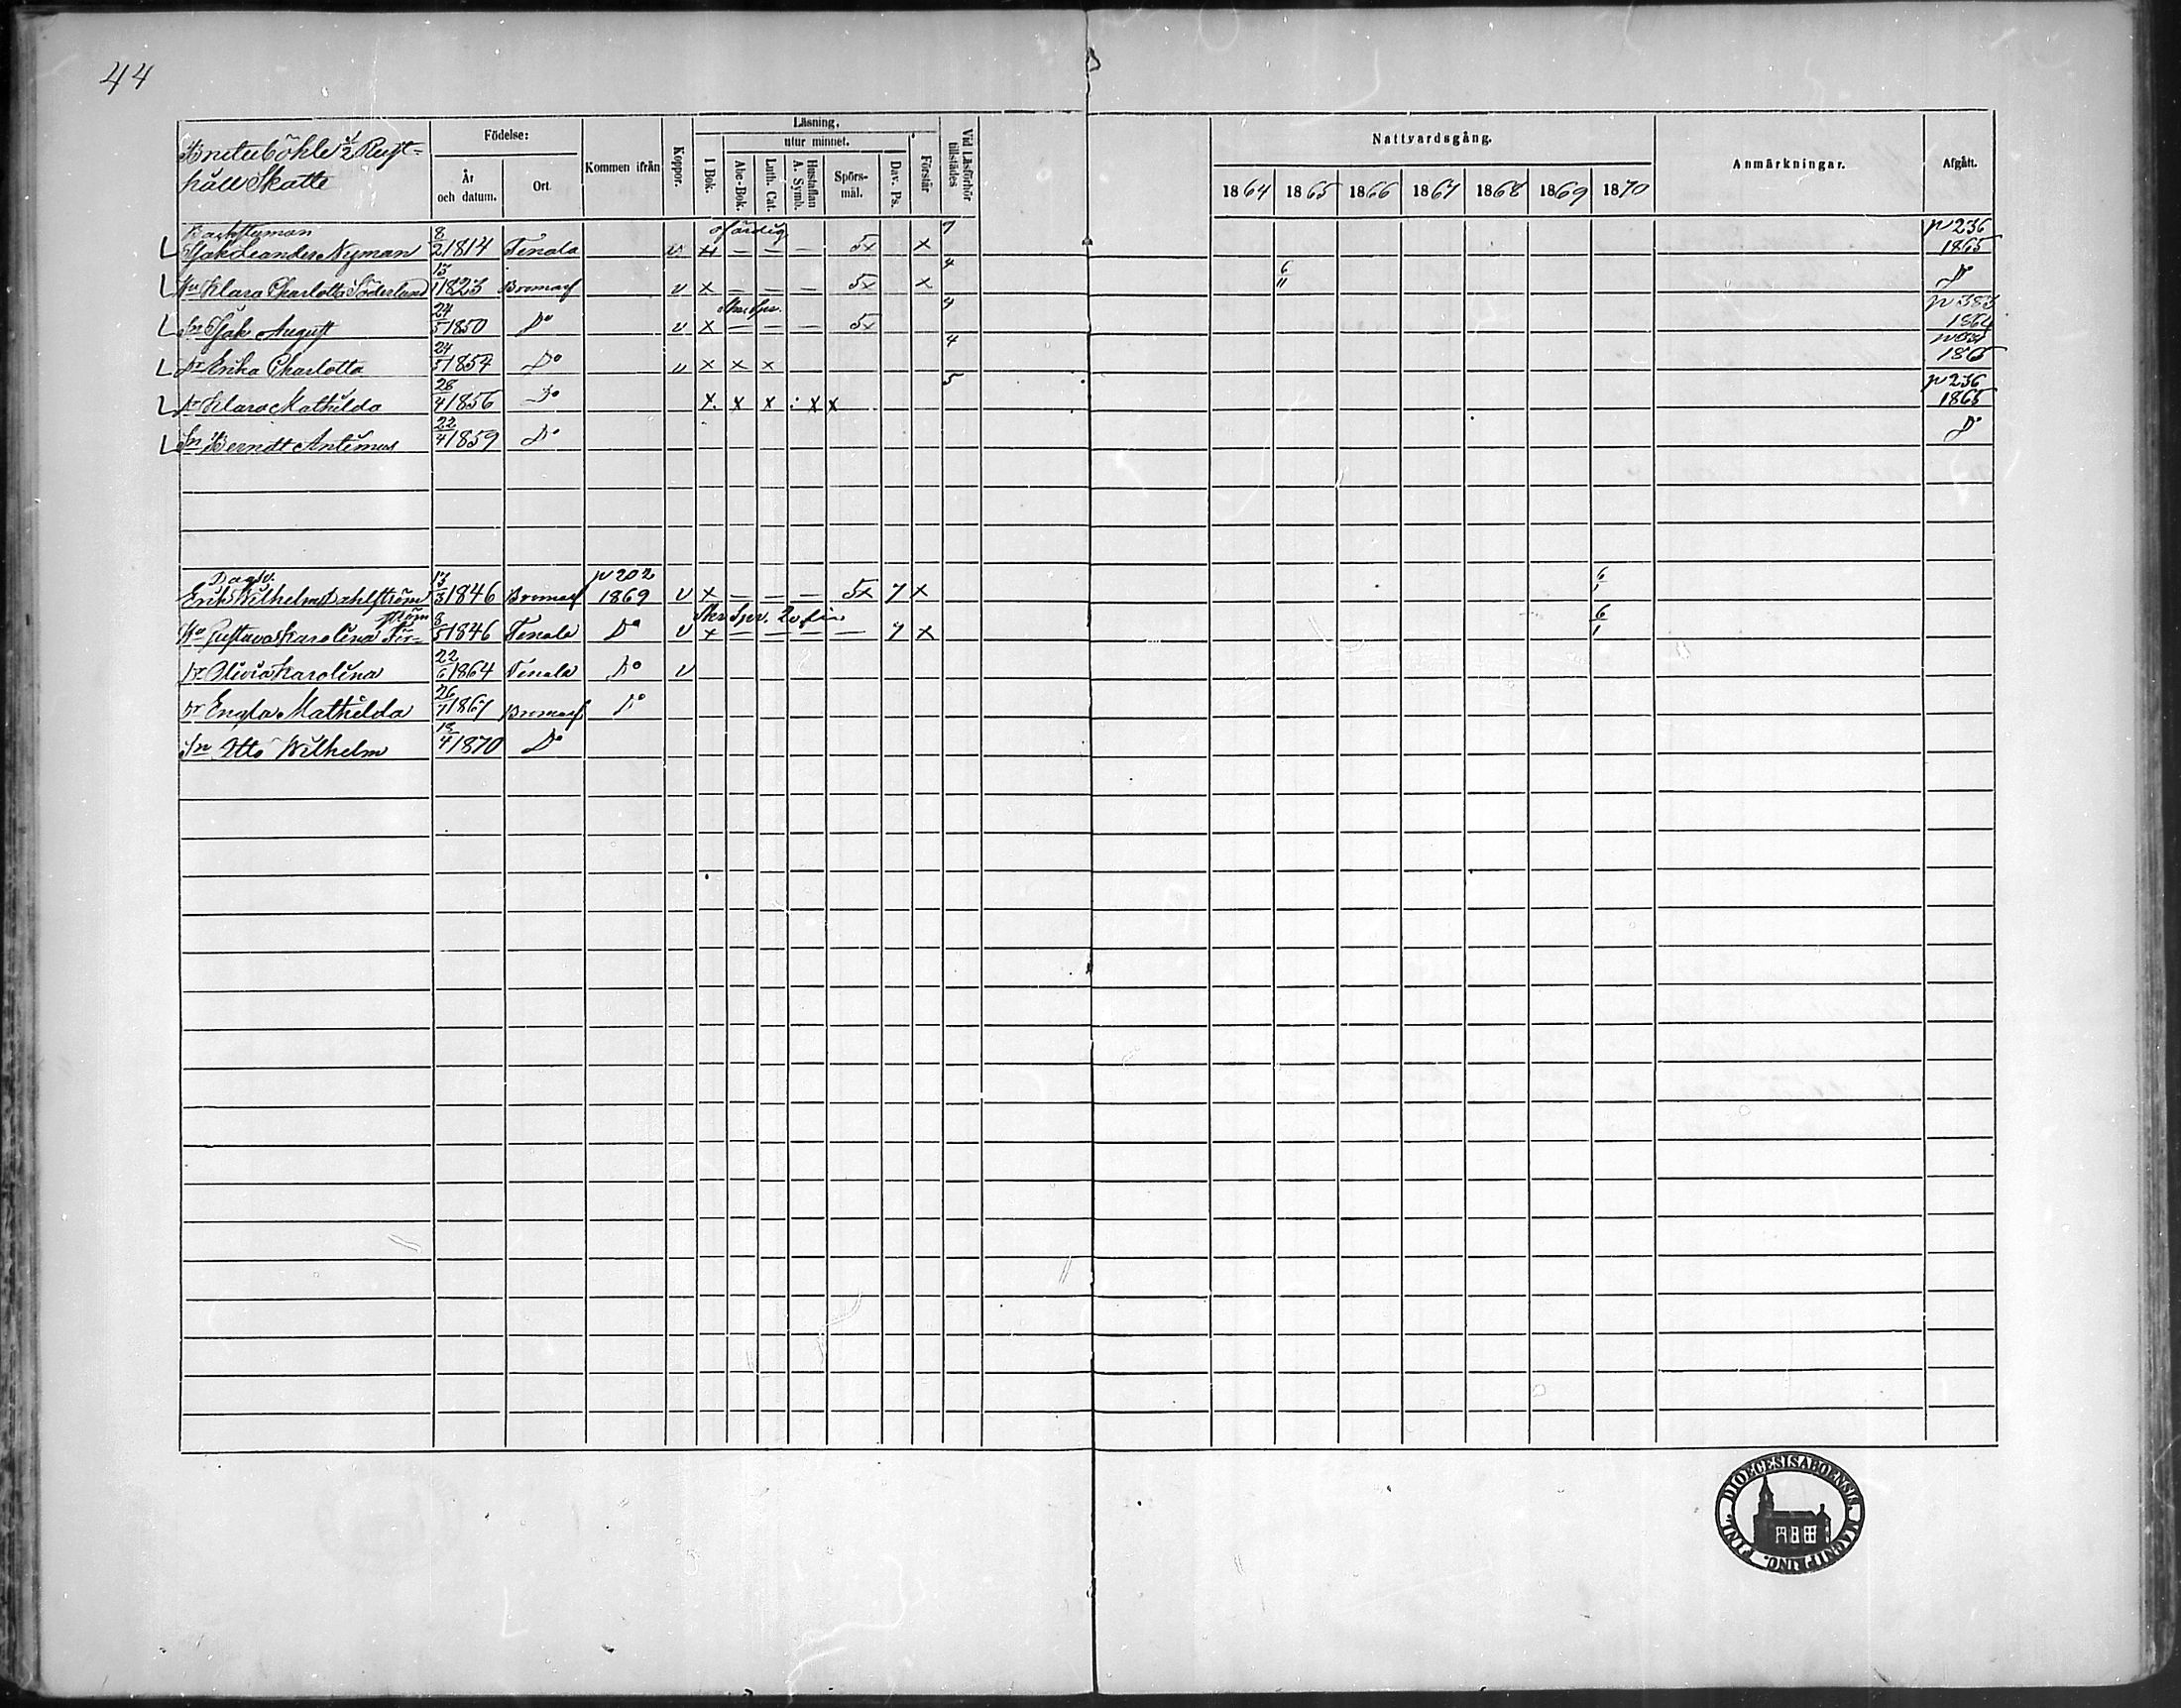 44
Knuteböhle 1/2 Rust-
håll Skatte
Födelse:
År och datum.
Ort.
Kommen ifrån
Koppor.
Läsning.
utur minnet.
I Bok.
Abc-Bok.
Luth. Cat.
Hustaflan A. Symb.
Spörs-mål.
Dav. Ps.
Förstår
Vid Läsförhör tillstädes
Nattvardsgång.
1864 1865 1866 1867 1868 1869 1870
Anmärkningar.
Afgått.
Backstuman ofärdig p 236
Isak Leander Nyman 8/2 1814 Tenala v x — — — 5x x 1865
Hu Klara Charlotta Söderlund 13/1 1823 Bromarf v x — — — 5x x 4 6/11 Do
Sn Isak August 24/5 1850 Do v x — — — 5x 4 p 383 1864
Dr Erika Charlotta 24/5 1854 Do v x x x 4 1865
Dr Klara Mathilda 28/4 1856 Do x x x : x x 5 p 236 1865
Sn Berndt Antimus 22/4 1859 Do Do
Dagsv. p 202
Erik Wilhelm Dahlström 13/3 1846 Bromarf 1869 v x — — — 5x 7 x 6/1
Hu Gustava Karolina 8/5 1846 Tenala Do v x — — — — 7 x 6/1
Dr Olivia Karolina 22/6 1864 Tenala Do v
Dr Engla Mathilda 26/11 1867 Bromarf Do
Sn Otto Wilhelm 12/4 1870 Do
DIOECESIS ABOENSIS. MAGNI PRINC. FINL.